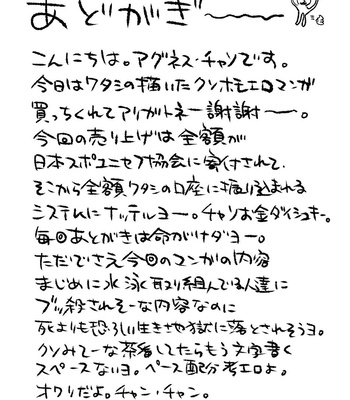 あとがき〜〜
こんにちは。アグネス・チャンです。
今日はワタシの描いたクソホモエロマンガ
買っちくれてアリガトネー謝謝ー〜。
今回の売り上げは全額が
日本スポユニセフ協会に寄付されて、
そこから全額ワタシの口座に振り込まれる
システムにナッテルヨー。チャンお金ダイシュキー。
毎回あとがきは命がけダヨー。
ただでさえ今回のマンガの内容
まじめに水泳取り組んでいる人達に
ブッ殺されそーな内容なのに
死よりも恐ろしい生き地獄に落とされそうヨ。
クソみてーな茶番してたらもう文字書く
スペースないヨ。ペース配分考エロよ。
オワリだよ。チャン・チャン。